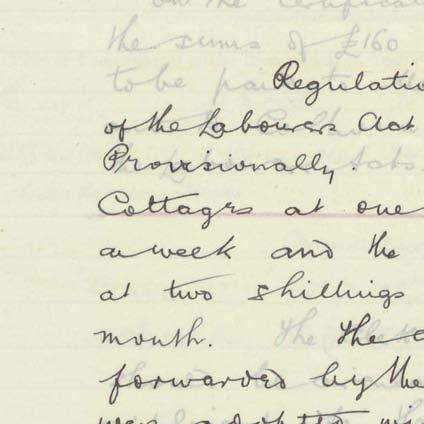 the sums of £160
to be
Regulatio
of the Labourers Act
Provisionally.
Cottages at one
a week and the
at two shillings
month. the
forwarded by the
were adopted